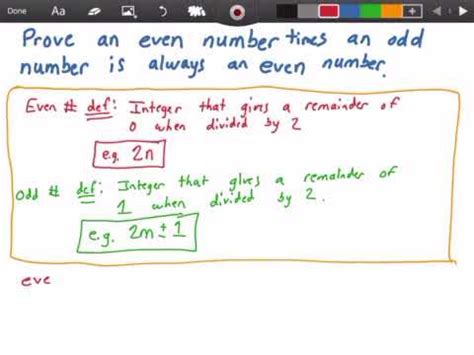 Done Aa
Prove an even number times an odd
number is always an even number.
Even # def: Integer that gives a remainder of
0 when divided by 2
e.g. 2n
Odd # def: Integer that gives a remainder of
1 when divided by 2.
e.g. 2m ± 1
eve